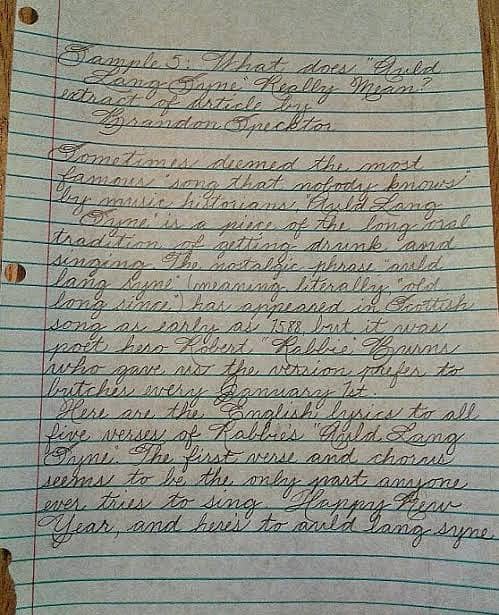 Sample 5: What does "Auld
Lang Syne" Really Mean?
extract of article by
Brandon Specktor
Sometimes deemed the most
famous "song that nobody knows"
by music historians "Auld Lang
Syne" is a piece of the long oral
tradition of getting drunk and
singing. The nostalgic phrase "auld
lang syne" (meaning literally, "old
long since") has appeared in Scottish
song as early as 1588, but it was
poet hero Robert "Rabbie" Burns
who gave us the version prefer to
butcher every January 1st.
Here are the English lyrics to all
five verses of Rabbie's "Auld Lang
Syne". The first verse and chorus
seems to be the only part anyone
ever tries to sing. Happy New
Year, and here's to auld lang syne